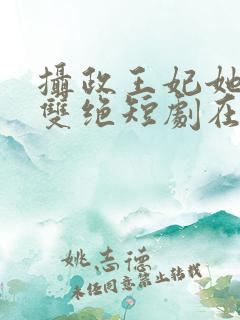 攝政王妃她
雙绝短劇在
姚志德
未经同意禁止转载